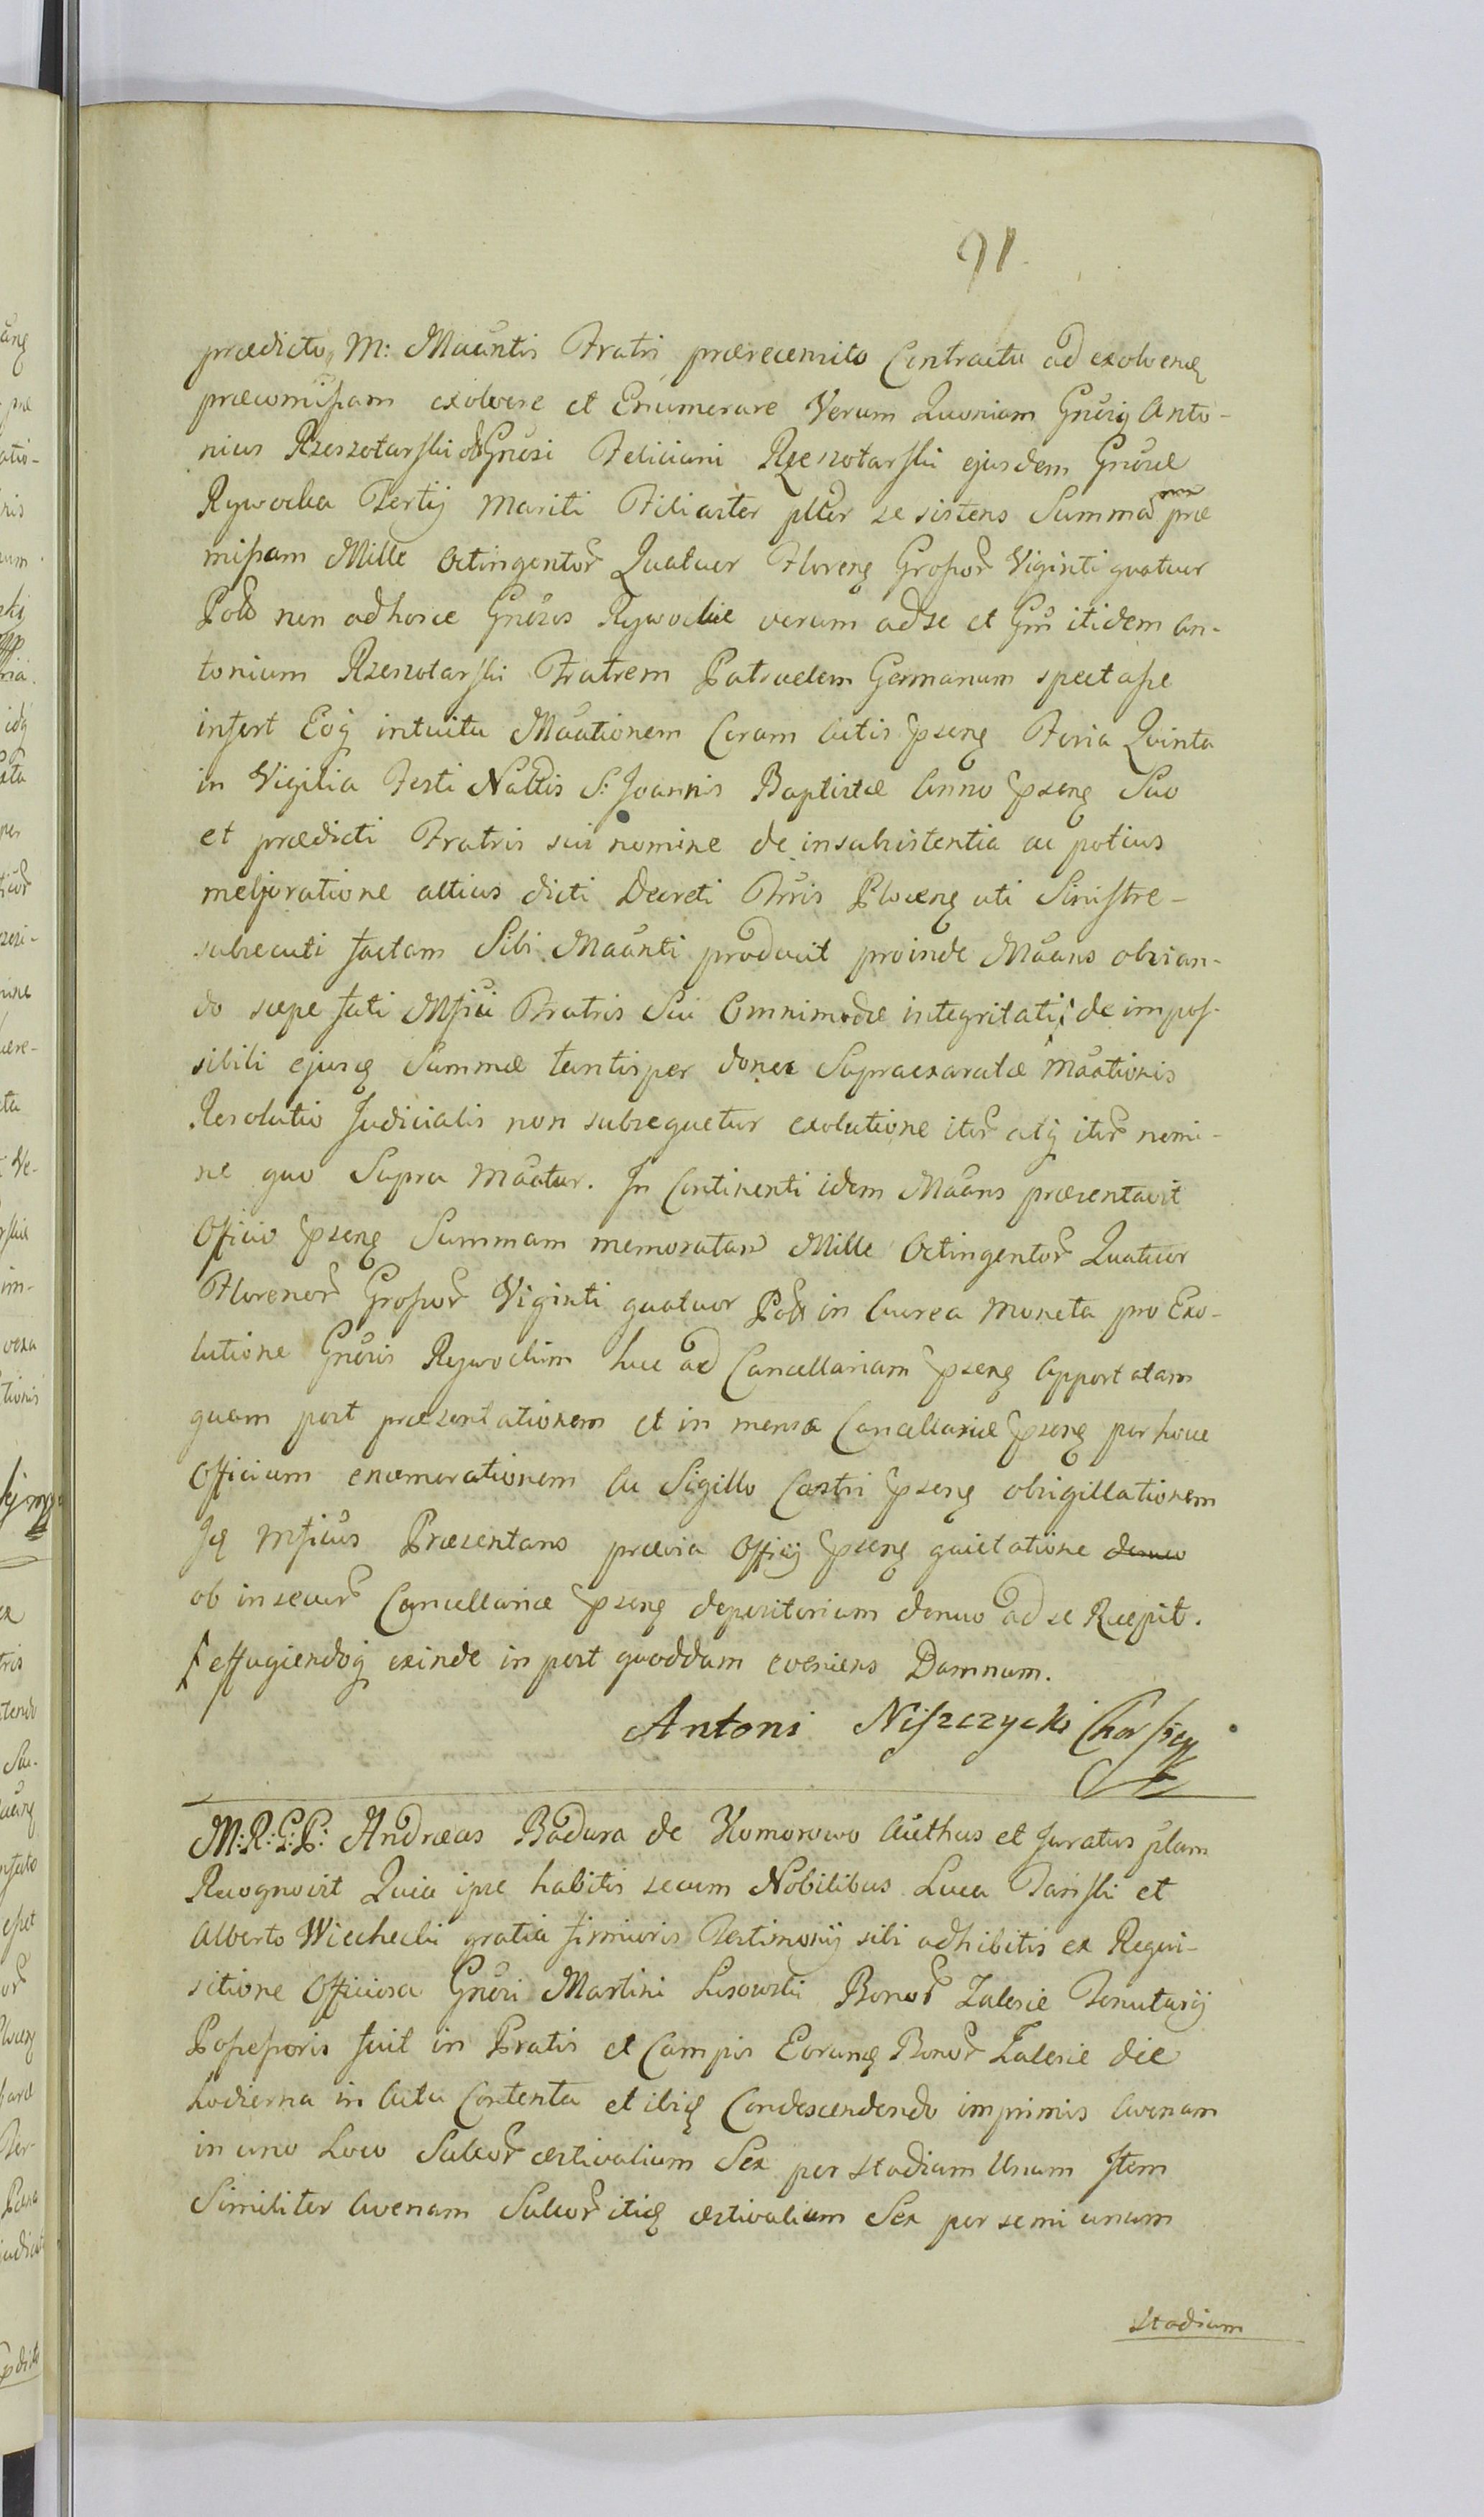 91
prædicto M: Maāntis Fratri prærecensito Contractu ad exolvenđ
præcomissam exolvere et Enumerare Verum Quoniam Gn̄sus Anto-
nius Rzeszotarski Gn̄si Feliciani Rzeszotarski ejusdem Gn̄sæ
Rywocka Tertij Mariti Filiaster pltēr se sistens Summam præ
missam Mille Octingentor̄ Quatuor Floren̄ Grossor̄ Viginti quatuor
Pol̄ non ad hosce Gn̄sos Rywockie verum ad se et Gn̄m itidem An-
tonium Rzeszotarski Fratrem Patruelem Germanum spectasse
infert Eoq̨ intuitu Maātionem Coram Actis p̄sen̄ Feria Quinta
in Vigilia Festi Nal̄tis S: Joannis Baptistæ Anno p̄sen̄ Suo
et prædicti Fratris sui nomine de insubsistentia ac potius
melioratione altius dicti Decreti Tr̄ris Plocen̄ uti Sinistre-
subsecuti factam Sibi Maānti produxit proinde Maāns obvian-
do sæpe fati Mfici Fratris Sui Omnimodæ integritati de impos-
sibili ejusq̨ Summæ tantisper donec Supraexaratæ Maātionis
Resolutio Judicialis non subsequetur exolutione iter̄ atq̨ iter̄ nomi-
ne quo Supra maātur. In Continenti idem Maāns præsentavit
Officio p̄sen̄ Summam memoratam Mille Octingentor̄ Quatuor
Florenor̄ Grossor̄ Viginti quatuor Pol̄ in Aurea Moneta pro Exo-
lutione Gn̄sis Rywockim huc ad Cancellariam p̄sen̄ Apportatam
quam post præsentationem et in mensa Cancellariæ p̄sen̄ per hocce
Officium enumerationem Ac Sigillo Castri p̄sen̄ obsigillationem
Mficus Præsentans prævia Officij p̄sen̄ quietatione denuo
ob insecur̄ Cancellariæ p̄sen̄ depositorium denuo ad se Recepit.
effugiendoq̨ exinde in post quoddam eveniens Damnum.
Antoni Niszczycki
M: R: G: P: Andreas Badura de Komorowo Aūthus et Juratus pl̄am
Recognovit Quia ipse habitis secum Nobilibus Luca Tanski et
Alberto Wiechecki gratia firmioris Testimonij sibi adhibitis ex Requi-
sitione Officiosa Gn̄si Martini Lisowski Bonor̄ Zalesie Tenutarij
Possessoris fuit in Pratis et Campis Eorunđ Bonor̄ Zalesie die
hodierna in Actu Contenta et ibiđ Condescendendo imprimis Avenam
in uno Loco Sulcor̄ æstivalium Sex per stadium Unum Item
Similiter Avenam Sulcor̄ itiđ æstivalium Sex per semi unum
stadium